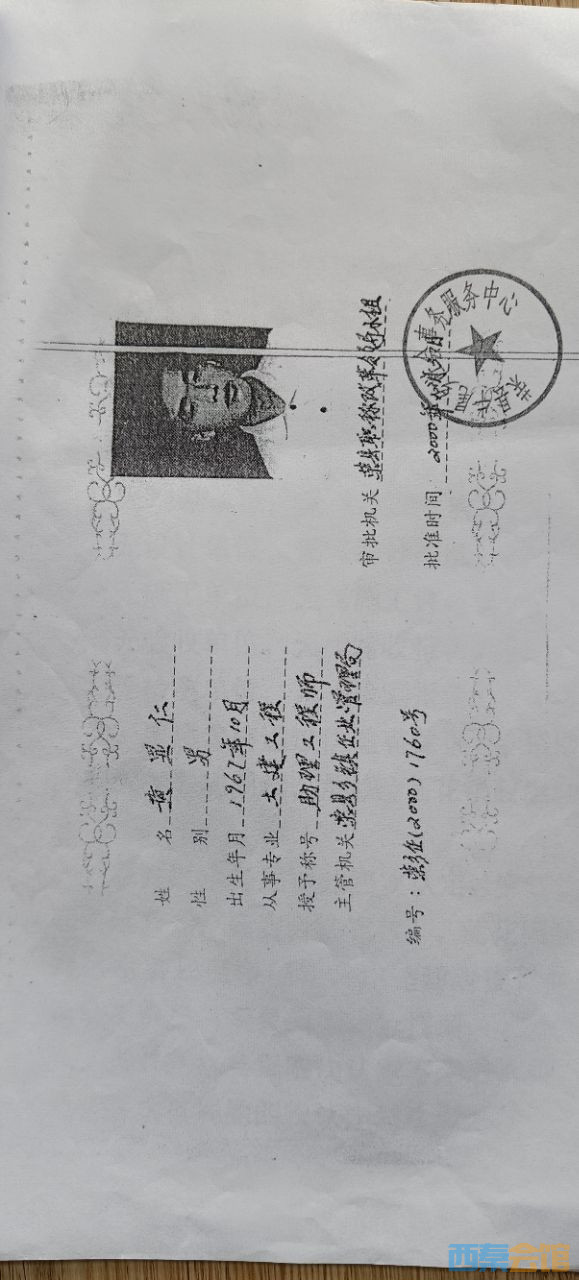 姓 名 黄显仁
性 别 男
出生年月 1967年10月
从事专业 土建工程
授予称号 助理工程师
主管机关 荣县乡镇企业管理局
编号：荣乡企(2000)1760号
审批机关 荣县职称改革领导小组
批准时间： 2000年
务服务中心
西秦会馆